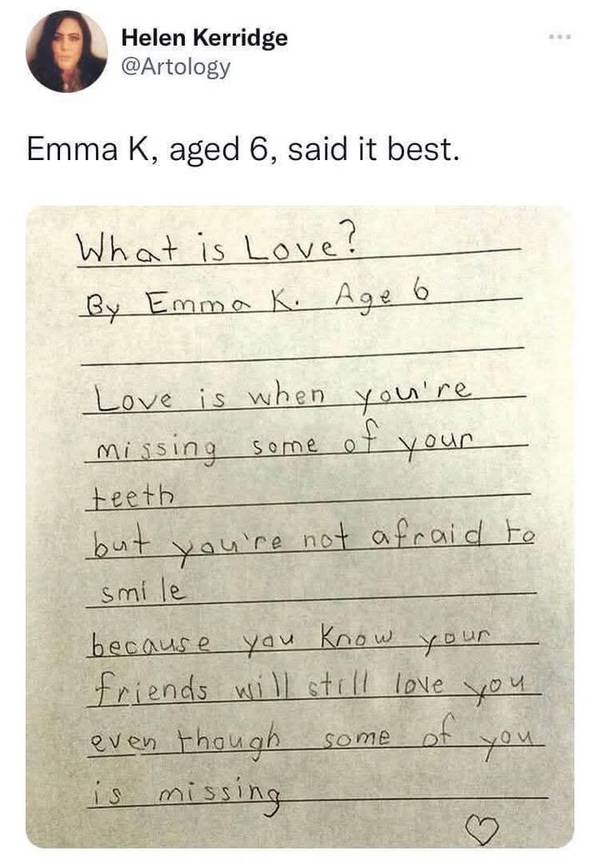 Helen Kerridge
@Artology
Emma K, aged 6, said it best.
What is Love?
By Emma K. Age 6
Love is when you're
missing some of your
teeth
but you're not afraid to
smile
because you know your
friends will still love you
even though some of you
is missing